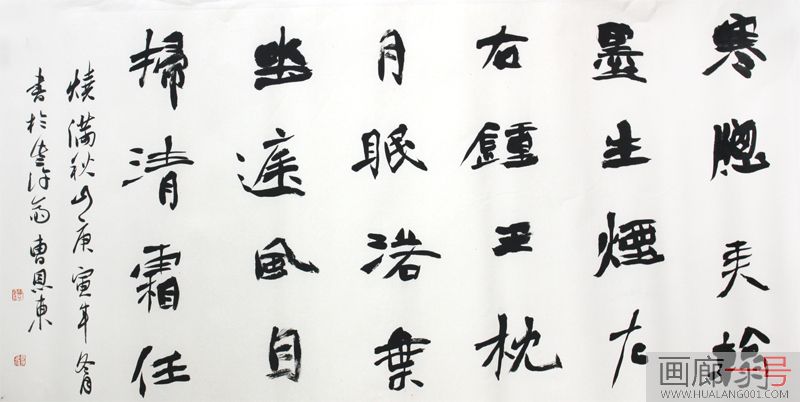 寒牕翰
墨生煙左
右鍾王枕
月眠落葉
幽庭風自
掃清霜任
燒滿秋山庚寅年冬月
書於齋曹恩東
画廊一号
WWW.HUALANG001.COM